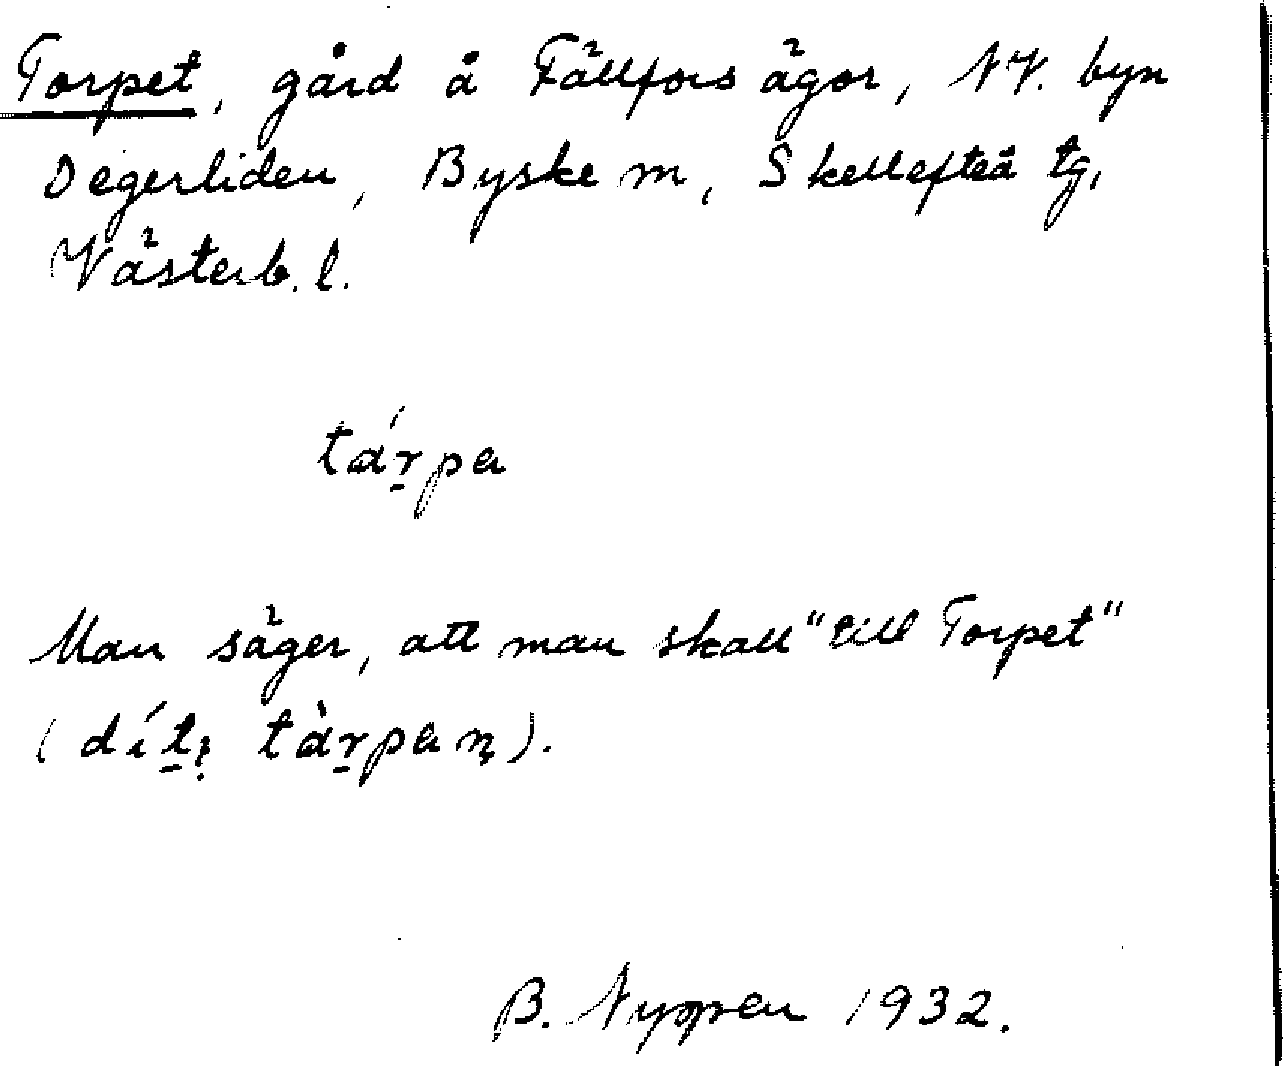 Torpet, gård å Fällfors ägor, NV. byn
Degerliden, Byske sn, Skellefteå tg,
Västerb. l.
tár̲pa
Man säger, att man skall "till Torpet"
(dít̲ tàr̲pan).
B. 1932.